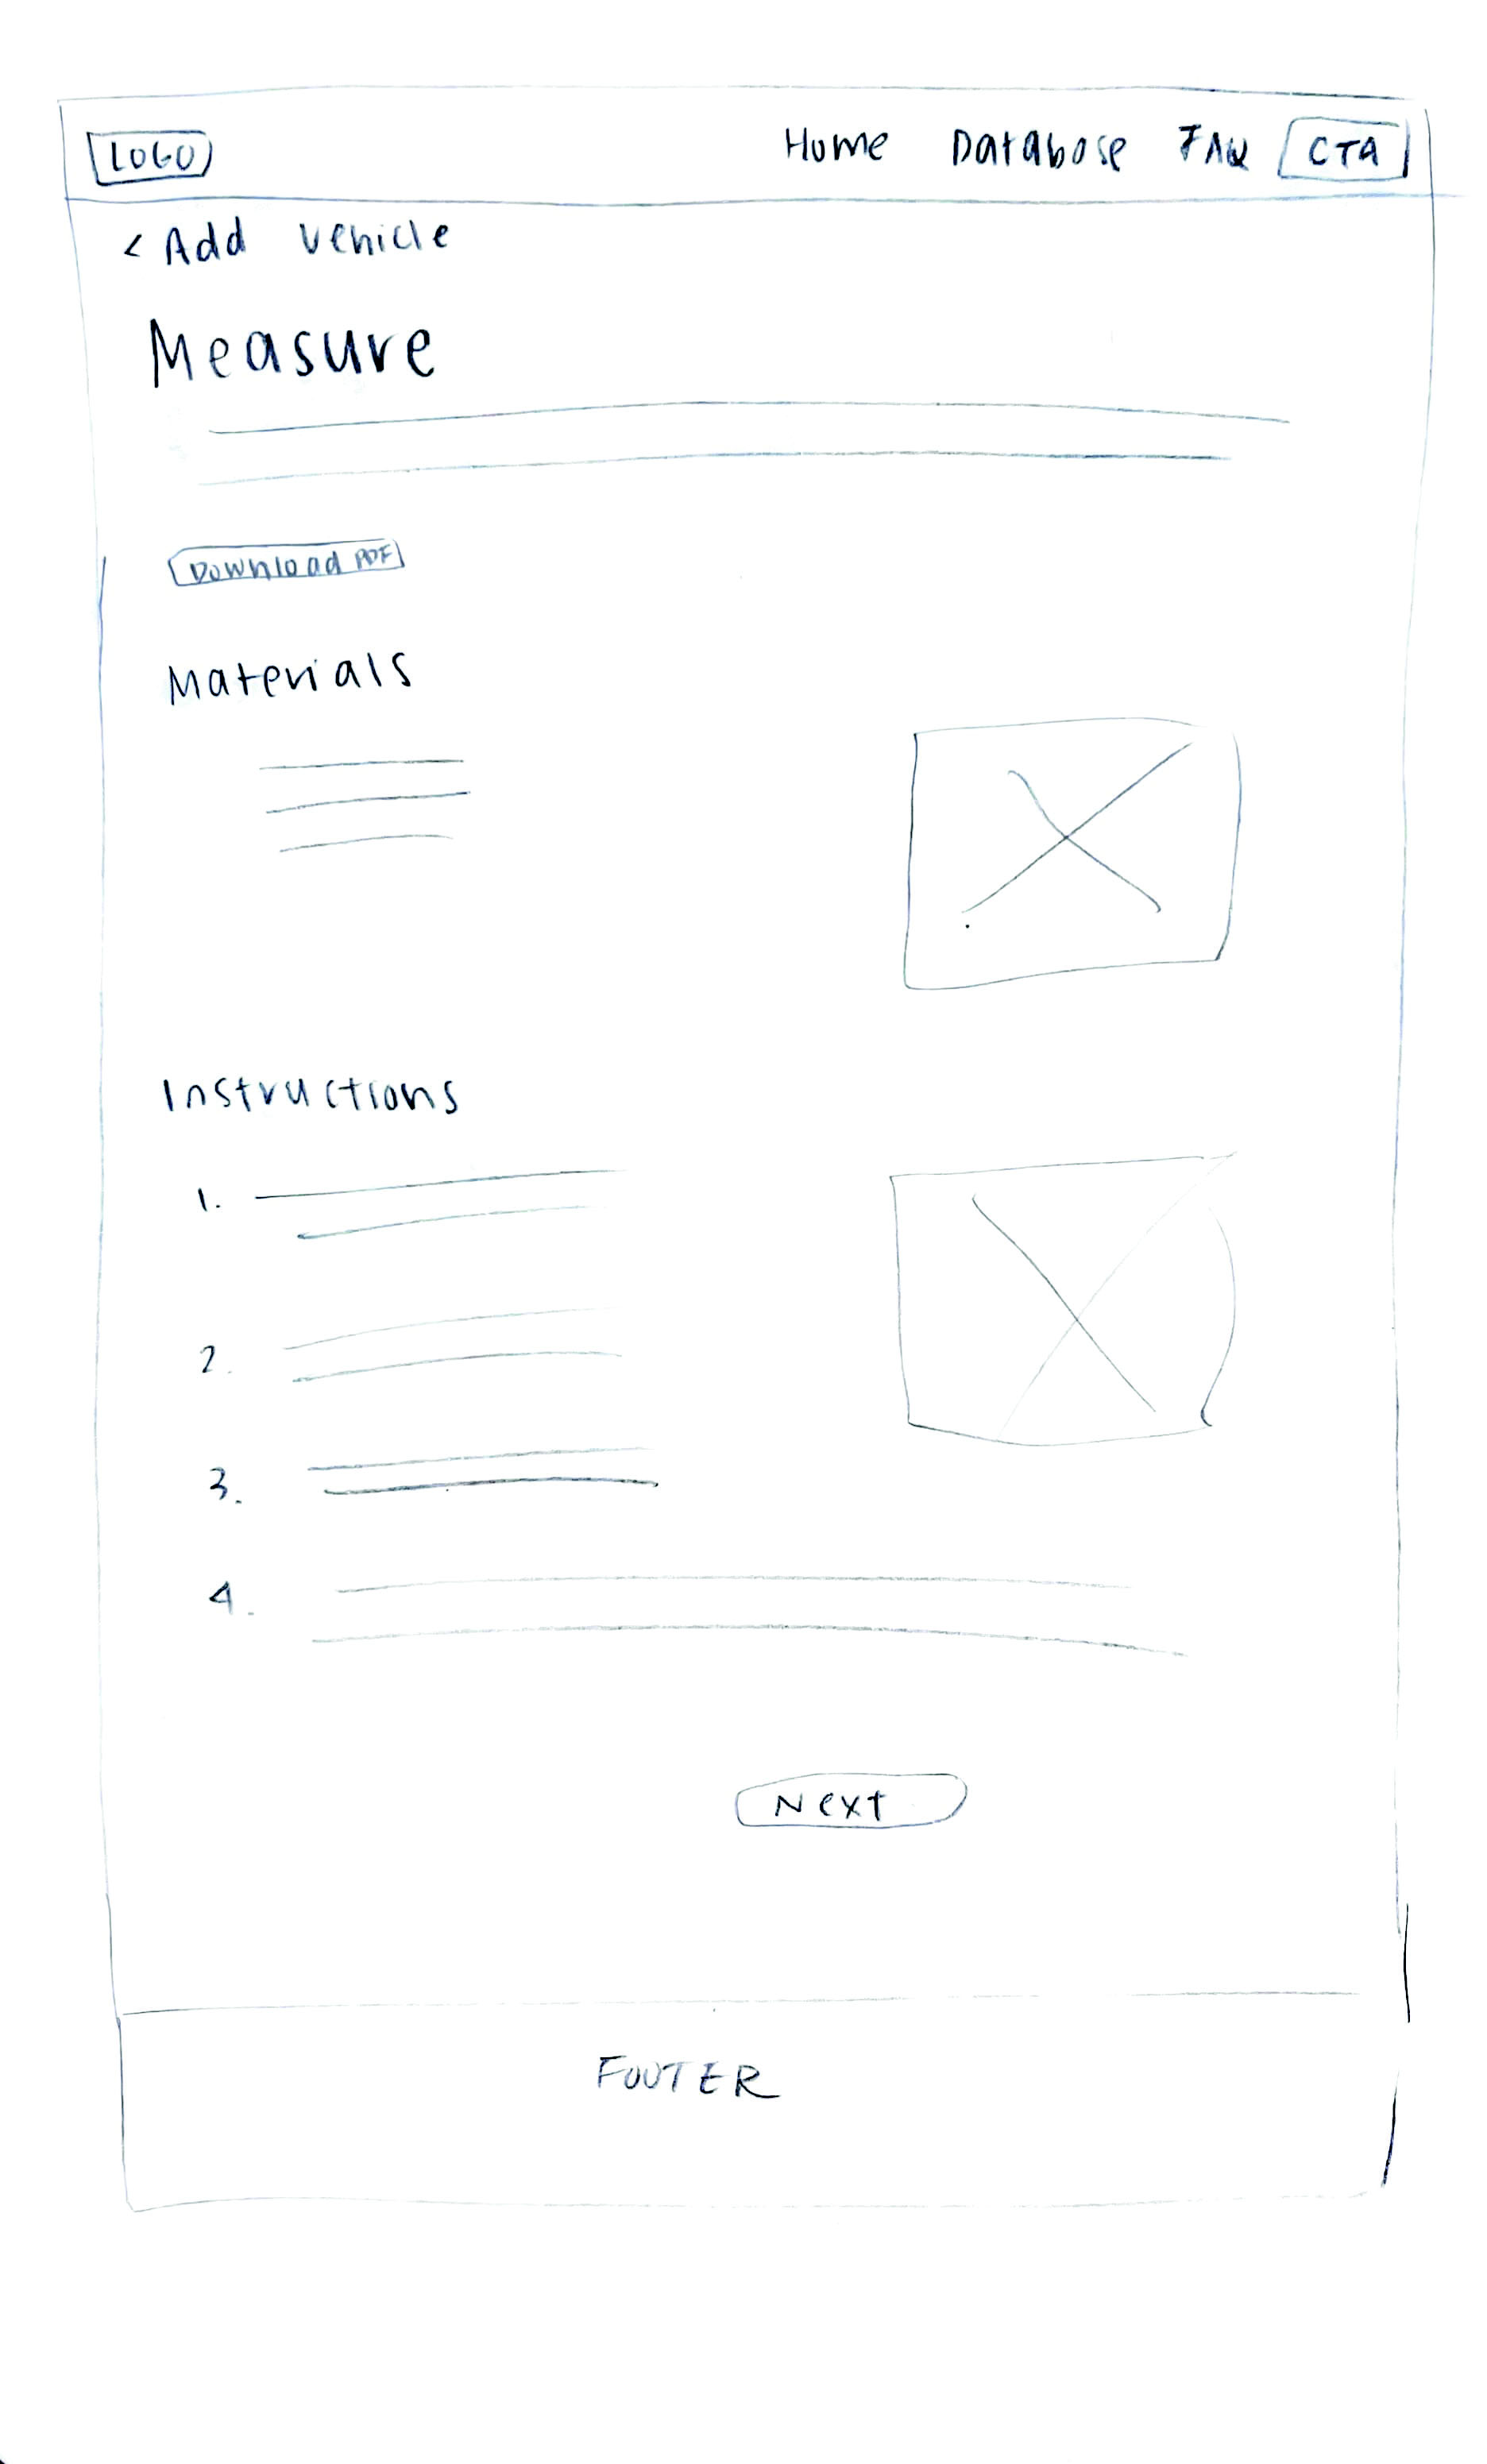 LOGO Home Database FAQ CTA
< Add vehicle
Measure
Download PDF
Materials
Instructions
1.
2.
3.
4.
Next
FOOTER